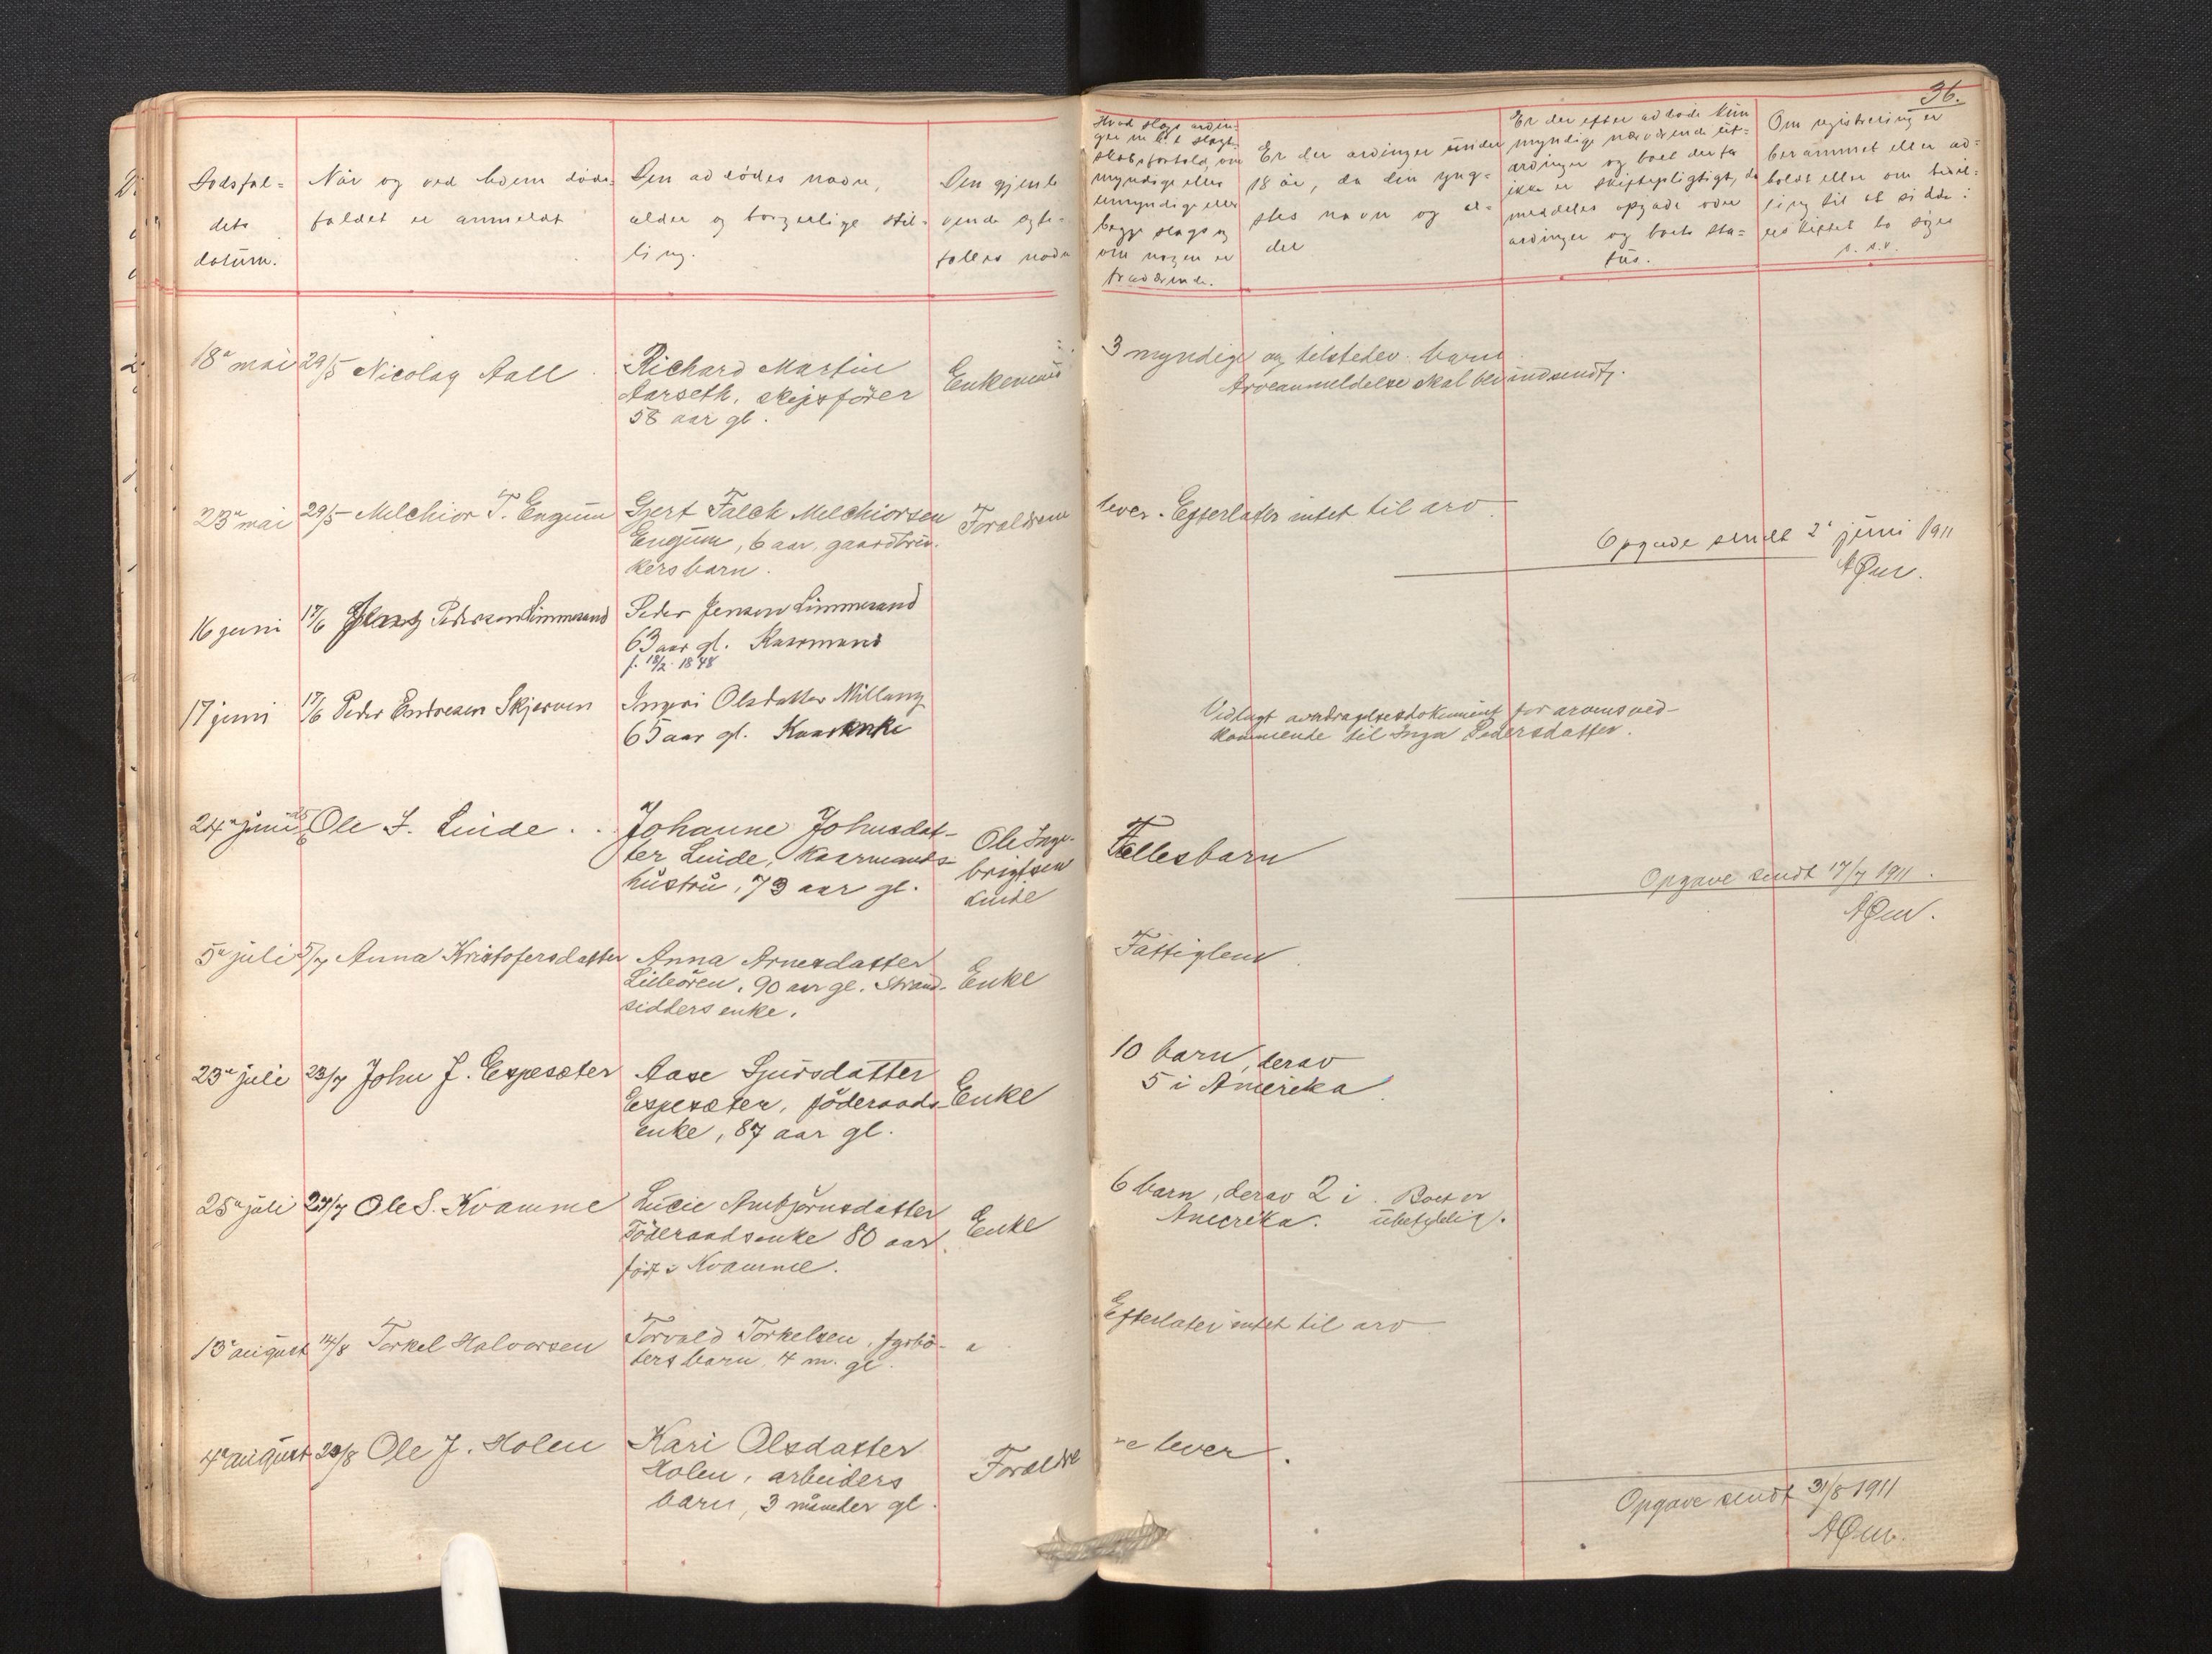 36.
Dødsfal=
dets
datum.
Når og ved hvem døds-
faldet er anmeldt
Den avdødes navn,
alder og borgerlige stil-
ling.
Den gjenle-
vende egte-
felles navn
Hvad slags arvin-
ger m. h. t. slegt-
skabsforhold, om
myndige eller
umyndige eller
begge slags og
om nogen er
fraværende.
Er der arvinger under
18 år, da den yng-
stes navn og al-
der
Er der efter avdøde kun
myndige nærværende ut-
arvinger og boet derfor
ikke er skiftepligtigt, da
meddeles opgave over
arvinger og boets sta=
tus.
Om registrering er
berammet eller av-
holdt eller om bevil-
ling til at sidde i
uskiftet bo søges
o. s. v.
18de mai 29/5 Nicolay Aall . Richard Martin
Aarseth, skipsfører
58 aar gl.
Enkemand
3 myndige og tilstedev. barn
Arveanmeldelse skal bli indsendt.
23de mai 29/5 Melchior T. Engum Gjert Falch Melchiorsen
Engum, 6 aar, gaardbru-
kers barn.
Forældrene
lever. Efterlater intet til arv.
Opgave sendt 2de juni 1911
AØen.
16 juni 17/6 Pedersen Simmesand Peder Jensen Simmesand
63 aar gl. Kaarmand
f. 18/2 1848
17 juni 17/6 Peder Endresen Skjerven Ingeri Olsdatter Millang
65 aar gl. Kaarenke
Vedlagt overdragelsesdokument for arvens ved-
kommende til Inga Pedersdatter.
24de juni 25/6 Ole I. Linde . . Johanne Johnsdat-
ter Linde, kaarmands
hustru, 73 aar gl.
Ole Inge-
brigtsen
Linde
Fællesbarn
Opgave sendt 17/7 1911.
AØen.
5te juli 5/7 Anna Kristofersdatter Anna Arnesdatter
Lilleøren, 90 aar gl. Strand-
sidders enke.
Enke
Fattiglem
23de juli 23/7 John J. Espeseter Aase Sjursdatter
Espeseter, føderaads
enke, 87 aar gl.
Enke
10 barn, derav
5 i Amerika
25de juli 27/7 Ole S. Kvamme Lucie Anbjørnsdatter
Føderaadsenke 80 aar,
født i Kvamme.
Enke
6 barn, derav 2 i
Amerika.
Boet er
ubetydelig.
13de august 14/8 Torkel Halvorsen Torvald Torkelsen, fyrbø-
ters barn, 4 m. gl.
Efterlater intet til arv
4de august 20/8 Ole J. Holen Kari Olsdatter
Holen, arbeiders
barn, 3 måneder gl.
Foreldre
-e lever.
Opgave sendt 31/8 1911
AØen.